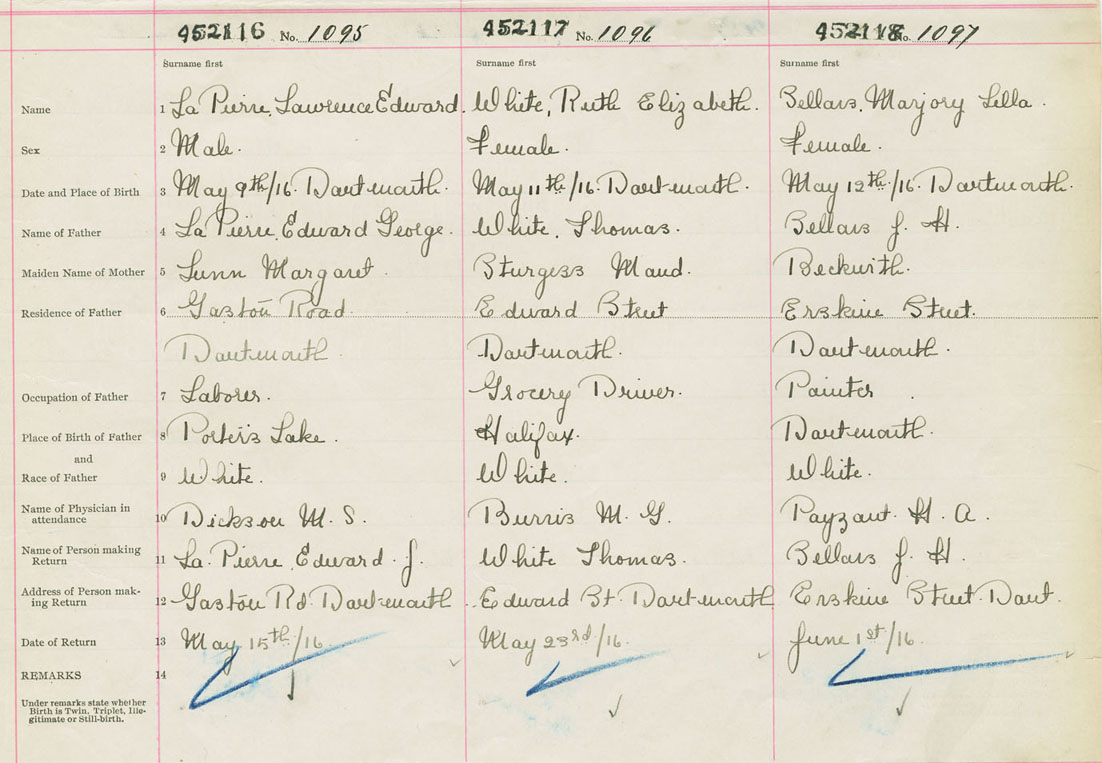 452116 No. 1095 452117 No. 1096 452118 No. 1097
Surname first Surname first Surname first
Name 1 La Pierre, Lawrence Edward. White, Ruth Elizabeth. Bellars, Marjory Lilla.
Sex 2 Male. Female. Female.
Date and Place of Birth 3 May 9th/16. Dartmouth. May 11th/16. Dartmouth. May 12th/16. Dartmouth.
Name of Father 4 La Pierre, Edward George. White, Thomas. Bellars J. H.
Maiden Name of Mother 5 Lunn Margaret. Sturgess Maud. Beckwith.
Residence of Father 6 Gaston Road. Edward Street Erskine Street.
Dartmouth Dartmouth. Dartmouth.
Occupation of Father 7 Laborer. Grocery Driver. Painter.
Place of Birth of Father 8 Porter's Lake. Halifax. Dartmouth.
and
Race of Father 9 White. White. White.
Name of Physician in attendance 10 Dickson M. S. Burris M. G. Payzant H. A.
Name of Person making Return 11 La Pierre, Edward J. White Thomas. Bellars J. H.
Address of Person making Return 12 Gaston Rd. Dartmouth. Edward St. Dartmouth Erskine Street. Dart.
Date of Return 13 May 15th/16 May 23rd/16. June 1st/16.
REMARKS 14
Under remarks state whether
Birth is Twin, Triplet, Ille-
gitimate or Still-birth.